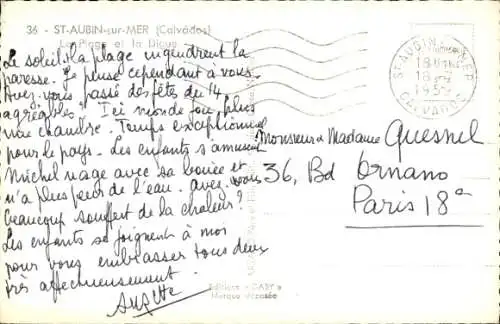 36 - ST-AUBIN-sur-MER (Calvados)
La Plage et la Digue
Le soleil, la plage engendrent la
paresse. Je pense cependant à vous.
Avez vous passé des fêtes du 14
agréables? Ici monde fou, plus
une chambre. Temps exceptionnel
pour le pays. Les enfants s'amusent
Michel nage avec sa bouée et
n'a plus peur de l'eau. Avez vous
beaucoup souffert de la chaleur?
Les enfants se joignent à moi
pour vous embrasser tous deux
très affectueusement.
ST-AUBIN
MER
18 H
18-7
CALVADOS
Monsieur & Madame Quesnel
36, Bd Ornano
Paris 18e
Editions "GABY"
Marque déposée